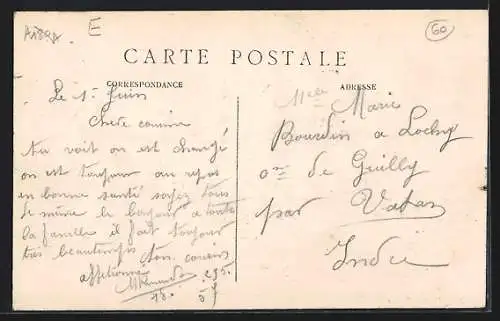 A1879A
E
60
CARTE POSTALE
CORRESPONDANCE
ADRESSE
Le 1r Juin
Chere cousine
Tu voit on est changé
on est toujour au repos
en bonne santé soyez tous
de même le bonjour a toute
la famille il fait toujour
très beautemps ton cousin
affetionné
Melle Marie
Bourdin a Lochy
cne de Guilly
par Vatan
Indre